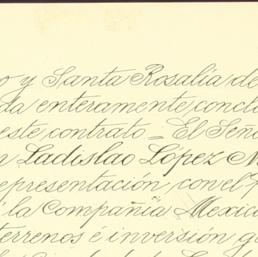 o y Santa Rosalia de
da enteramente conclu
este contrato = El Seño
n Ladislao López N
epresentación, con el
la Compañia Mexica
terrenos é inversión g